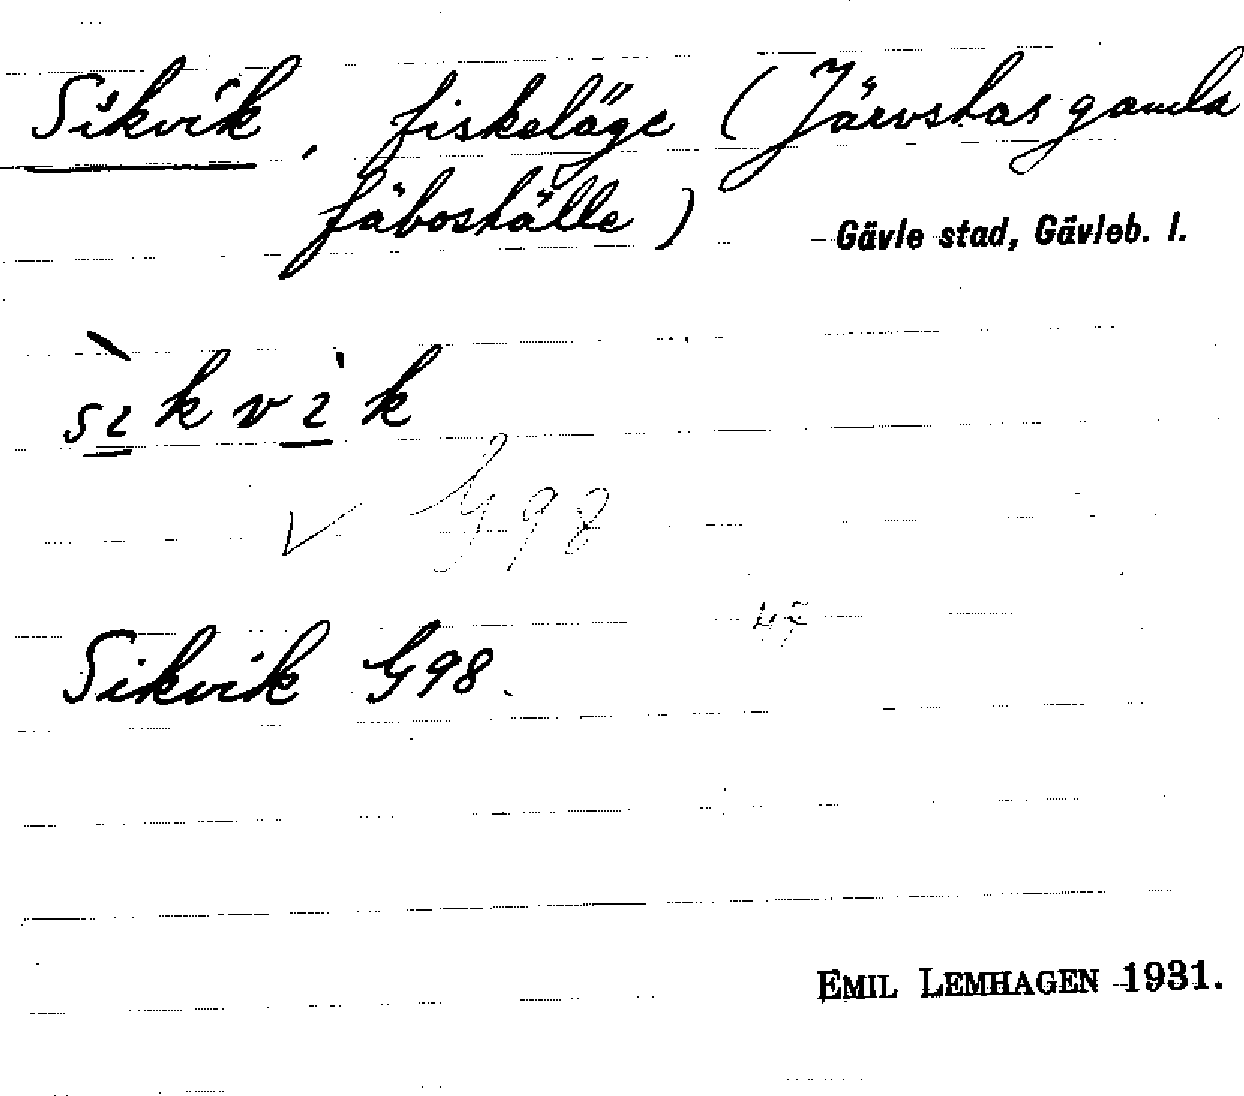 Sikvik, fiskeläge (Järvstas gamla
fäboställe)
Gävle stad, Gävleb. l.
sìkvik
G98
47
Sikvik G98.
EMIL LEMHAGEN 1931.